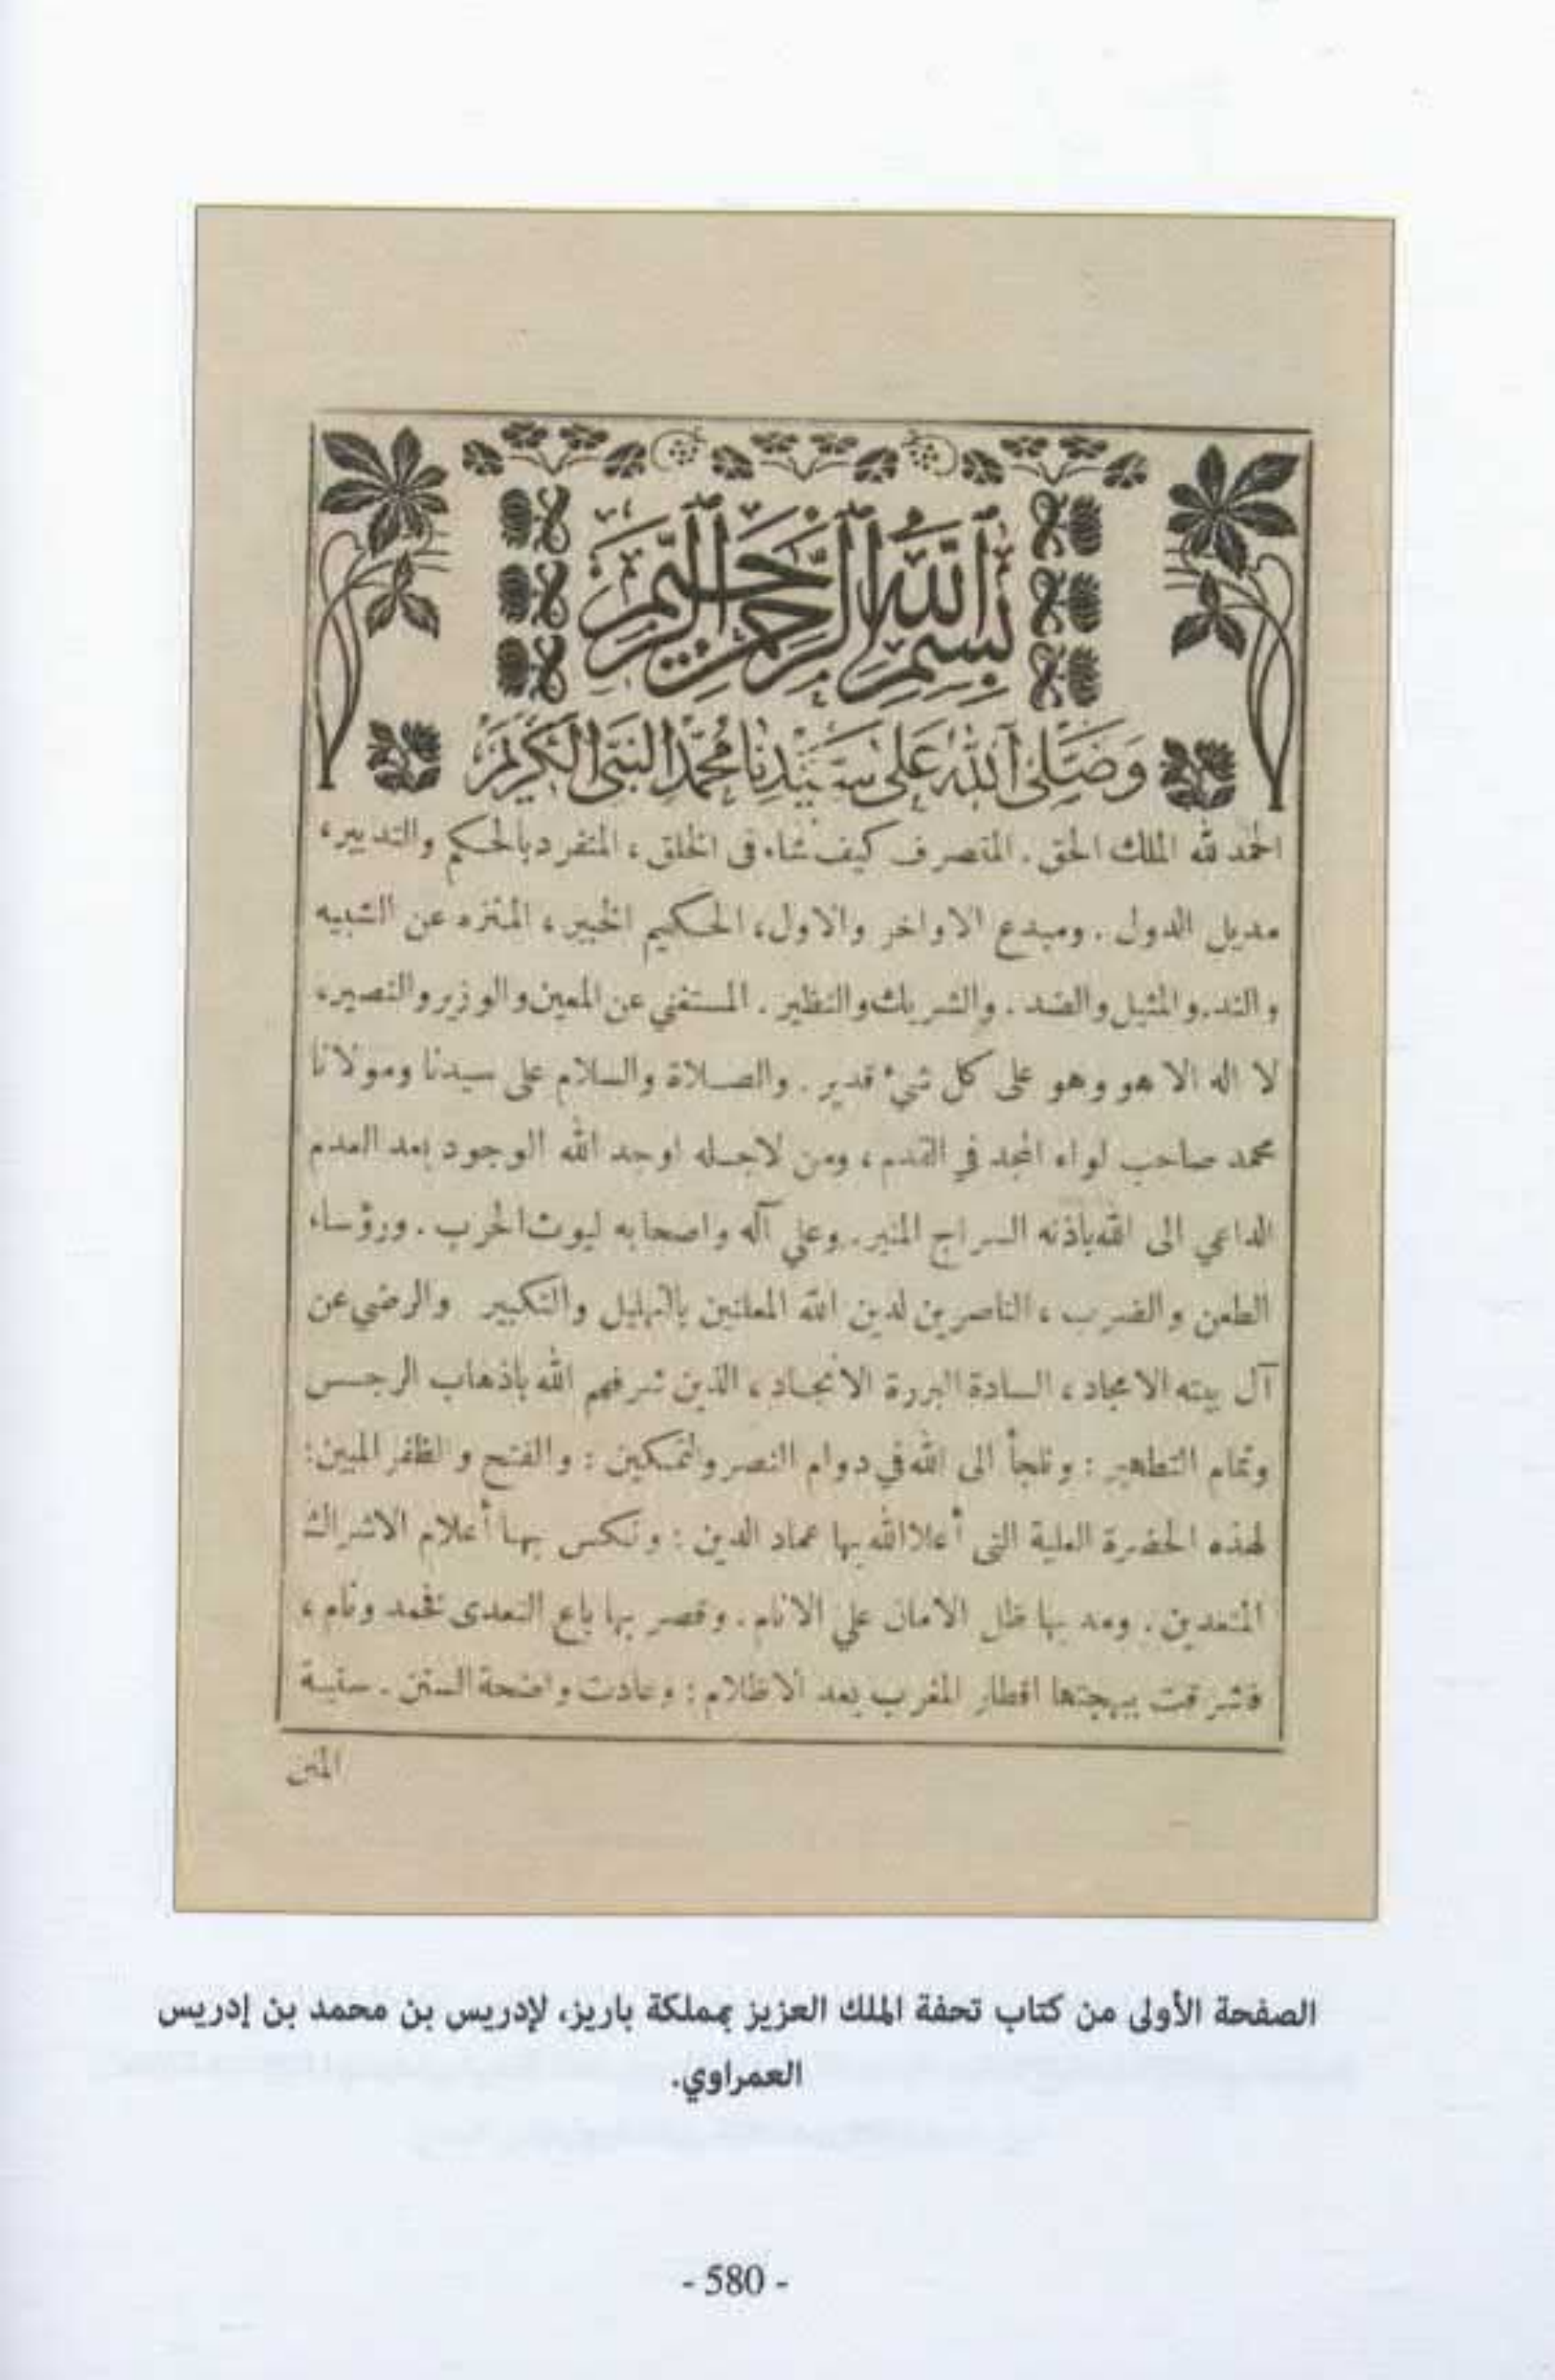 بسم الله الرحمن الرحيم
وصلى الله على سيدنا محمد النبي الكريم
الحمد لله الملك الحق . المتصرف كيف شاء فى الخلق ، المتفرد بالحكم والتدبير ،
مديل الدول . ومبدع الاواخر والاول ، الحكيم الخبير ، المنتزه عن الشبيه
والند . والمثيل والضد . والشريك والنظير . المستغني عن المعين والوزير والنصير ،
لا اله الا هو وهو على كل شيء قدير . والصلاة والسلام على سيدنا ومولانا
محمد صاحب لواء المجد في القدم ، ومن لاجله اوجد الله الوجود بعد العدم
الداعي الى الله باذنه السراج المنير . وعلي آله واصحابه ليوث الحرب . ورؤساء
الطعن والضرب ، الناصرين لدين الله المعلنين بالتهليل والتكبير والرضي عن
آل بيته الامجاد ، السادة البررة الانجاد ، الذين شرفهم الله باذهاب الرجس
وتمام التطهير : ونلجأ الى الله في دوام النصر والتمكين : والفتح والظفر المبين :
لهذه الحضرة العلية التى أعلا الله بها عماد الدين : ونكس بها أعلام الاشراك
المتعدين . ومد بها ظل الامان علي الانام . وقصر بها باع التعدى فخمد ونام ،
فشرقت ببهجتها اقطار المغرب بعد الاظلام : وعادت واضحة السنن . سنية
المنن
الصفحة الأولى من كتاب تحفة الملك العزيز بمملكة باريز، لإدريس بن محمد بن إدريس
العمراوي.
- 580 -